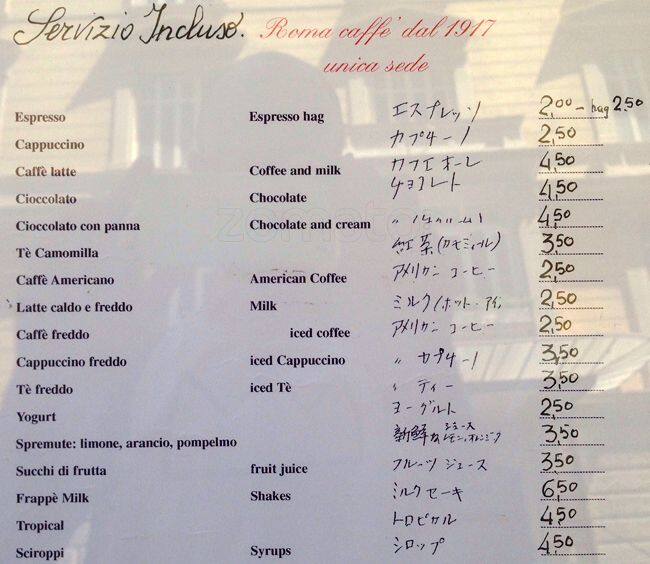 Servizio Incluso.
Roma caffè dal 1917
unica sede
Espresso Espresso hag エスプレッソ 2,00 - hag 2.50
Cappuccino カプチーノ 2,50
Caffè latte Coffee and milk カフェオーレ 4,50
Cioccolato Chocolate チョコレート 4,50
Cioccolato con panna Chocolate and cream 〃 4,50
Tè Camomilla 紅茶(カモミィル) 3,50
Caffè Americano American Coffee アメリカン コーヒー 2,50
Latte caldo e freddo Milk ミルク(ホット・アイ 2,50
Caffè freddo iced coffee アメリカン コーヒー 2,50
Cappuccino freddo iced Cappuccino 〃 カプチーノ 3,50
Tè freddo iced Tè 〃 ティー 3,50
Yogurt ヨーグルト 2,50
Spremute: limone, arancio, pompelmo 新鮮な ジュース レモン,オレンジ 3,50
Succhi di frutta fruit juice フルーツ ジュース 3,50
Frappè Milk Shakes ミルクセーキ 6,50
Tropical トロピカル 4,50
Sciroppi Syrups シロップ 4,50